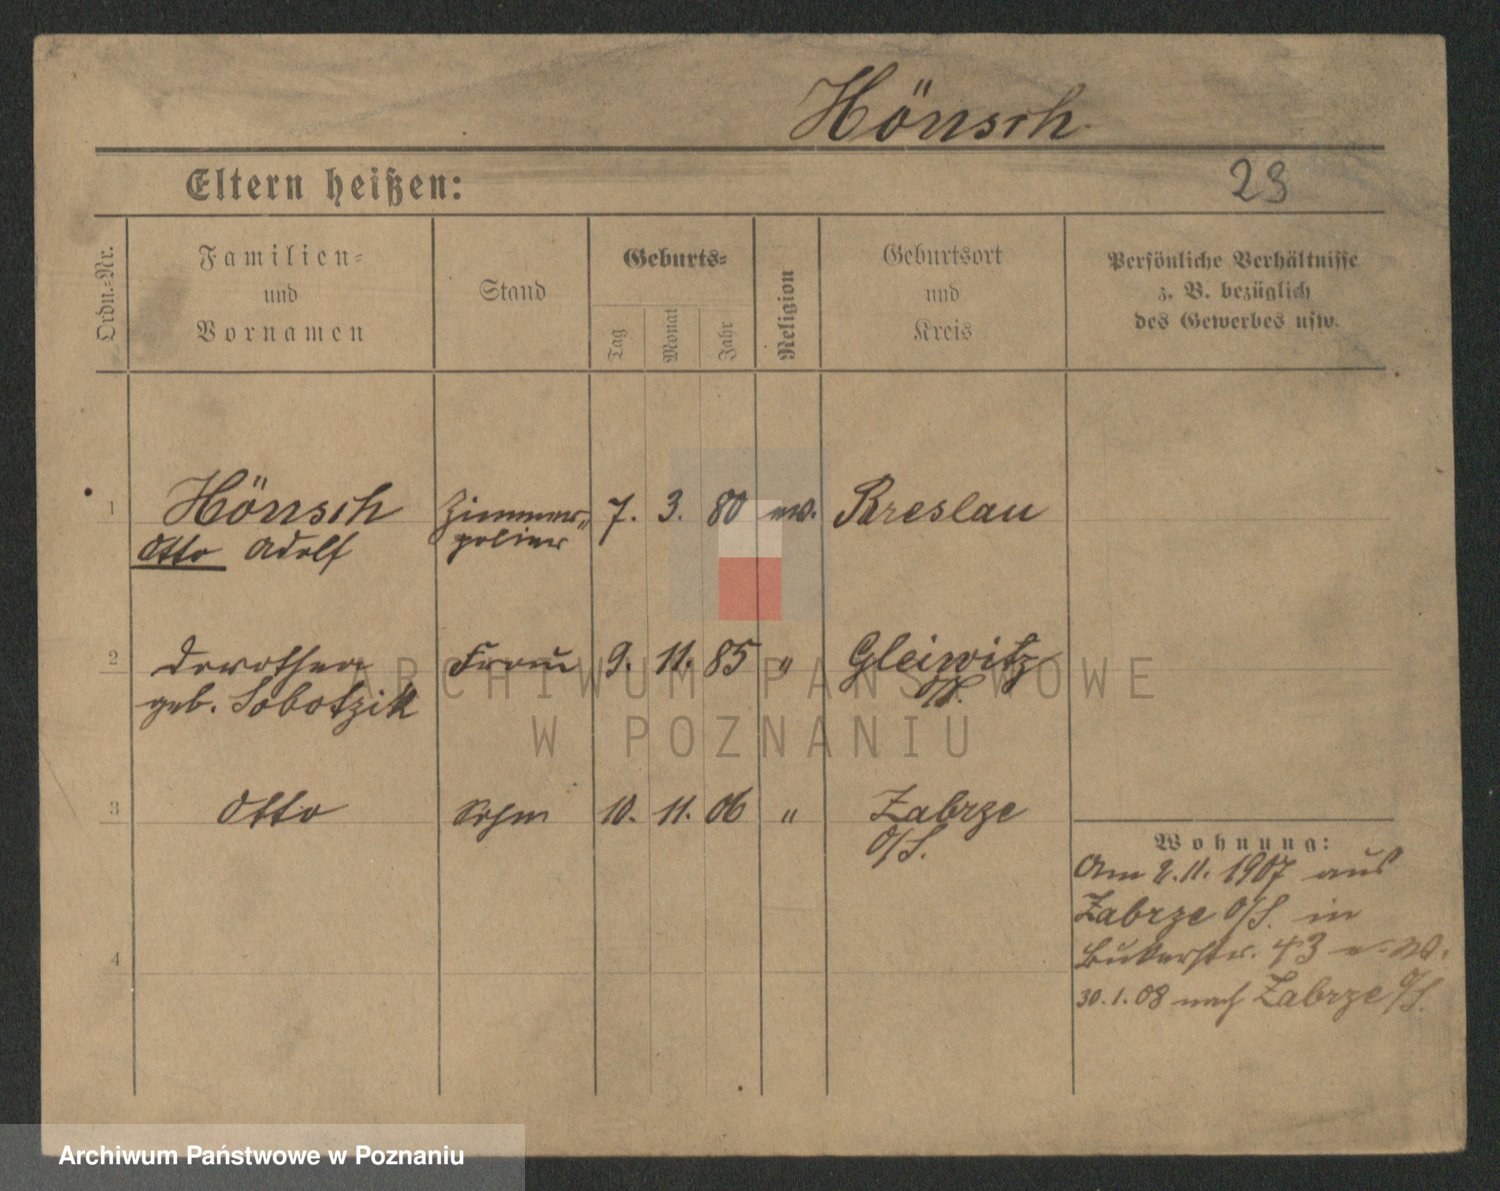 Hönsch
Eltern heißen:
23
Ordn.-Nr.
Familien-
und
Vornamen
Stand
Geburts-
Tag
Monat
Jahr
Religion
Geburtsort
und
Kreis
Persönliche Verhältnisse
z. B. bezüglich
des Gewerbes usw.
1 Hönsch Zimmer- 7. 3. 80 ev. Breslau
Otto Adolf polier
2 Dorothea Frau 9. 11. 85 " Gleiwitz
geb. Sobotzik O/S.
3 Otto Sohn 10. 11. 06 " Zabrze
O/S.
4
Wohnung:
Am 2.11.1907 aus
Zabrze O/S. in
Bukerstr. 43
30.1.08 nach Zabrze O/S.
ARCHIWUM PAŃSTWOWE
W POZNANIU
Archiwum Państwowe w Poznaniu